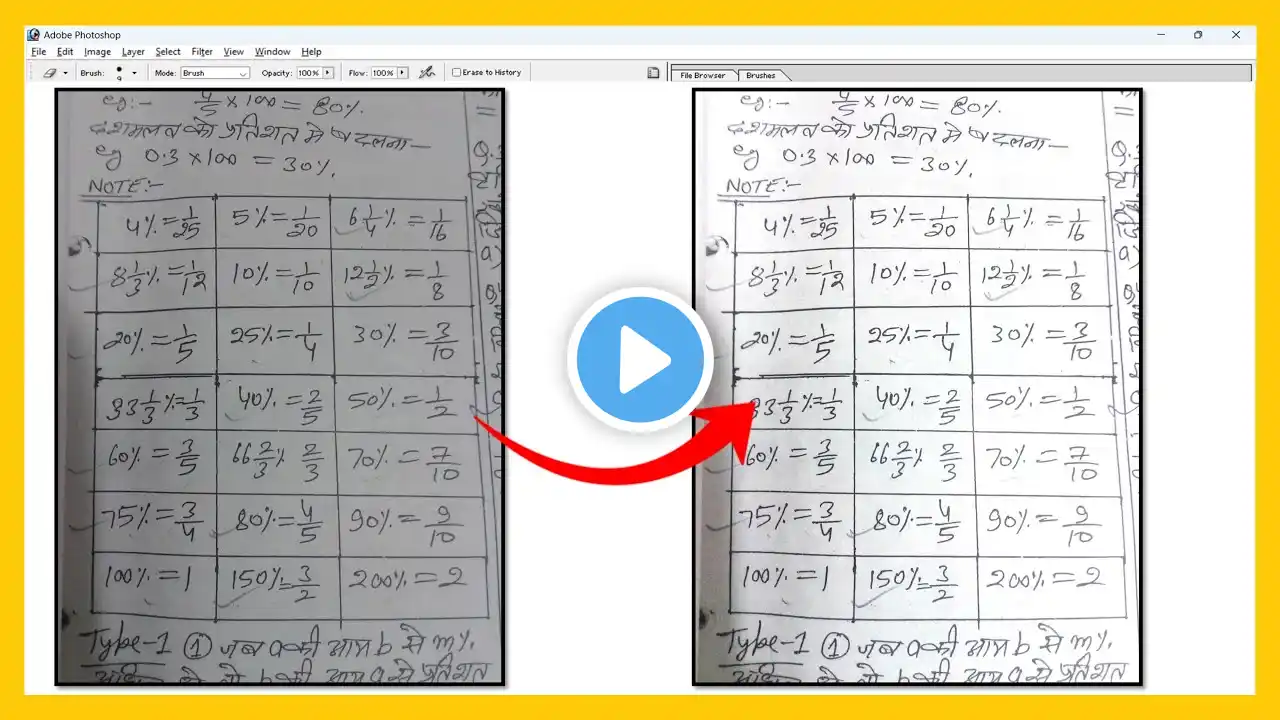 Adobe Photoshop
File Edit Image Layer Select Filter View Window Help
Brush: 9 Mode: Brush Opacity: 100% Flow: 100% Erase to History File Browser Brushes
eg:- 4/5 × 100 = 80%.
दशमलव को प्रतिशत मे बदलना—
eg 0.3 × 100 = 30%.
NOTE:-
4% = 1/25 5% = 1/20 6 1/4% = 1/16
8 1/3% = 1/12 10% = 1/10 12 1/2% = 1/8
20% = 1/5 25% = 1/4 30% = 3/10
33 1/3% = 1/3 40% = 2/5 50% = 1/2
60% = 3/5 66 2/3% 2/3 70% = 7/10
75% = 3/4 80% = 4/5 90% = 9/10
100% = 1 150% = 3/2 200% = 2
Type-1 ① जब a की आय b से m%.
b की आय a से प्रतिशत
eg:- 4/5 × 100 = 80%.
दशमलव को प्रतिशत मे बदलना—
eg 0.3 × 100 = 30%.
NOTE:-
4% = 1/25 5% = 1/20 6 1/4% = 1/16
8 1/3% = 1/12 10% = 1/10 12 1/2% = 1/8
20% = 1/5 25% = 1/4 30% = 3/10
33 1/3% = 1/3 40% = 2/5 50% = 1/2
60% = 3/5 66 2/3% 2/3 70% = 7/10
75% = 3/4 80% = 4/5 90% = 9/10
100% = 1 150% = 3/2 200% = 2
Type-1 ① जब a की आय b से m%.
b की आय a से प्रतिशत